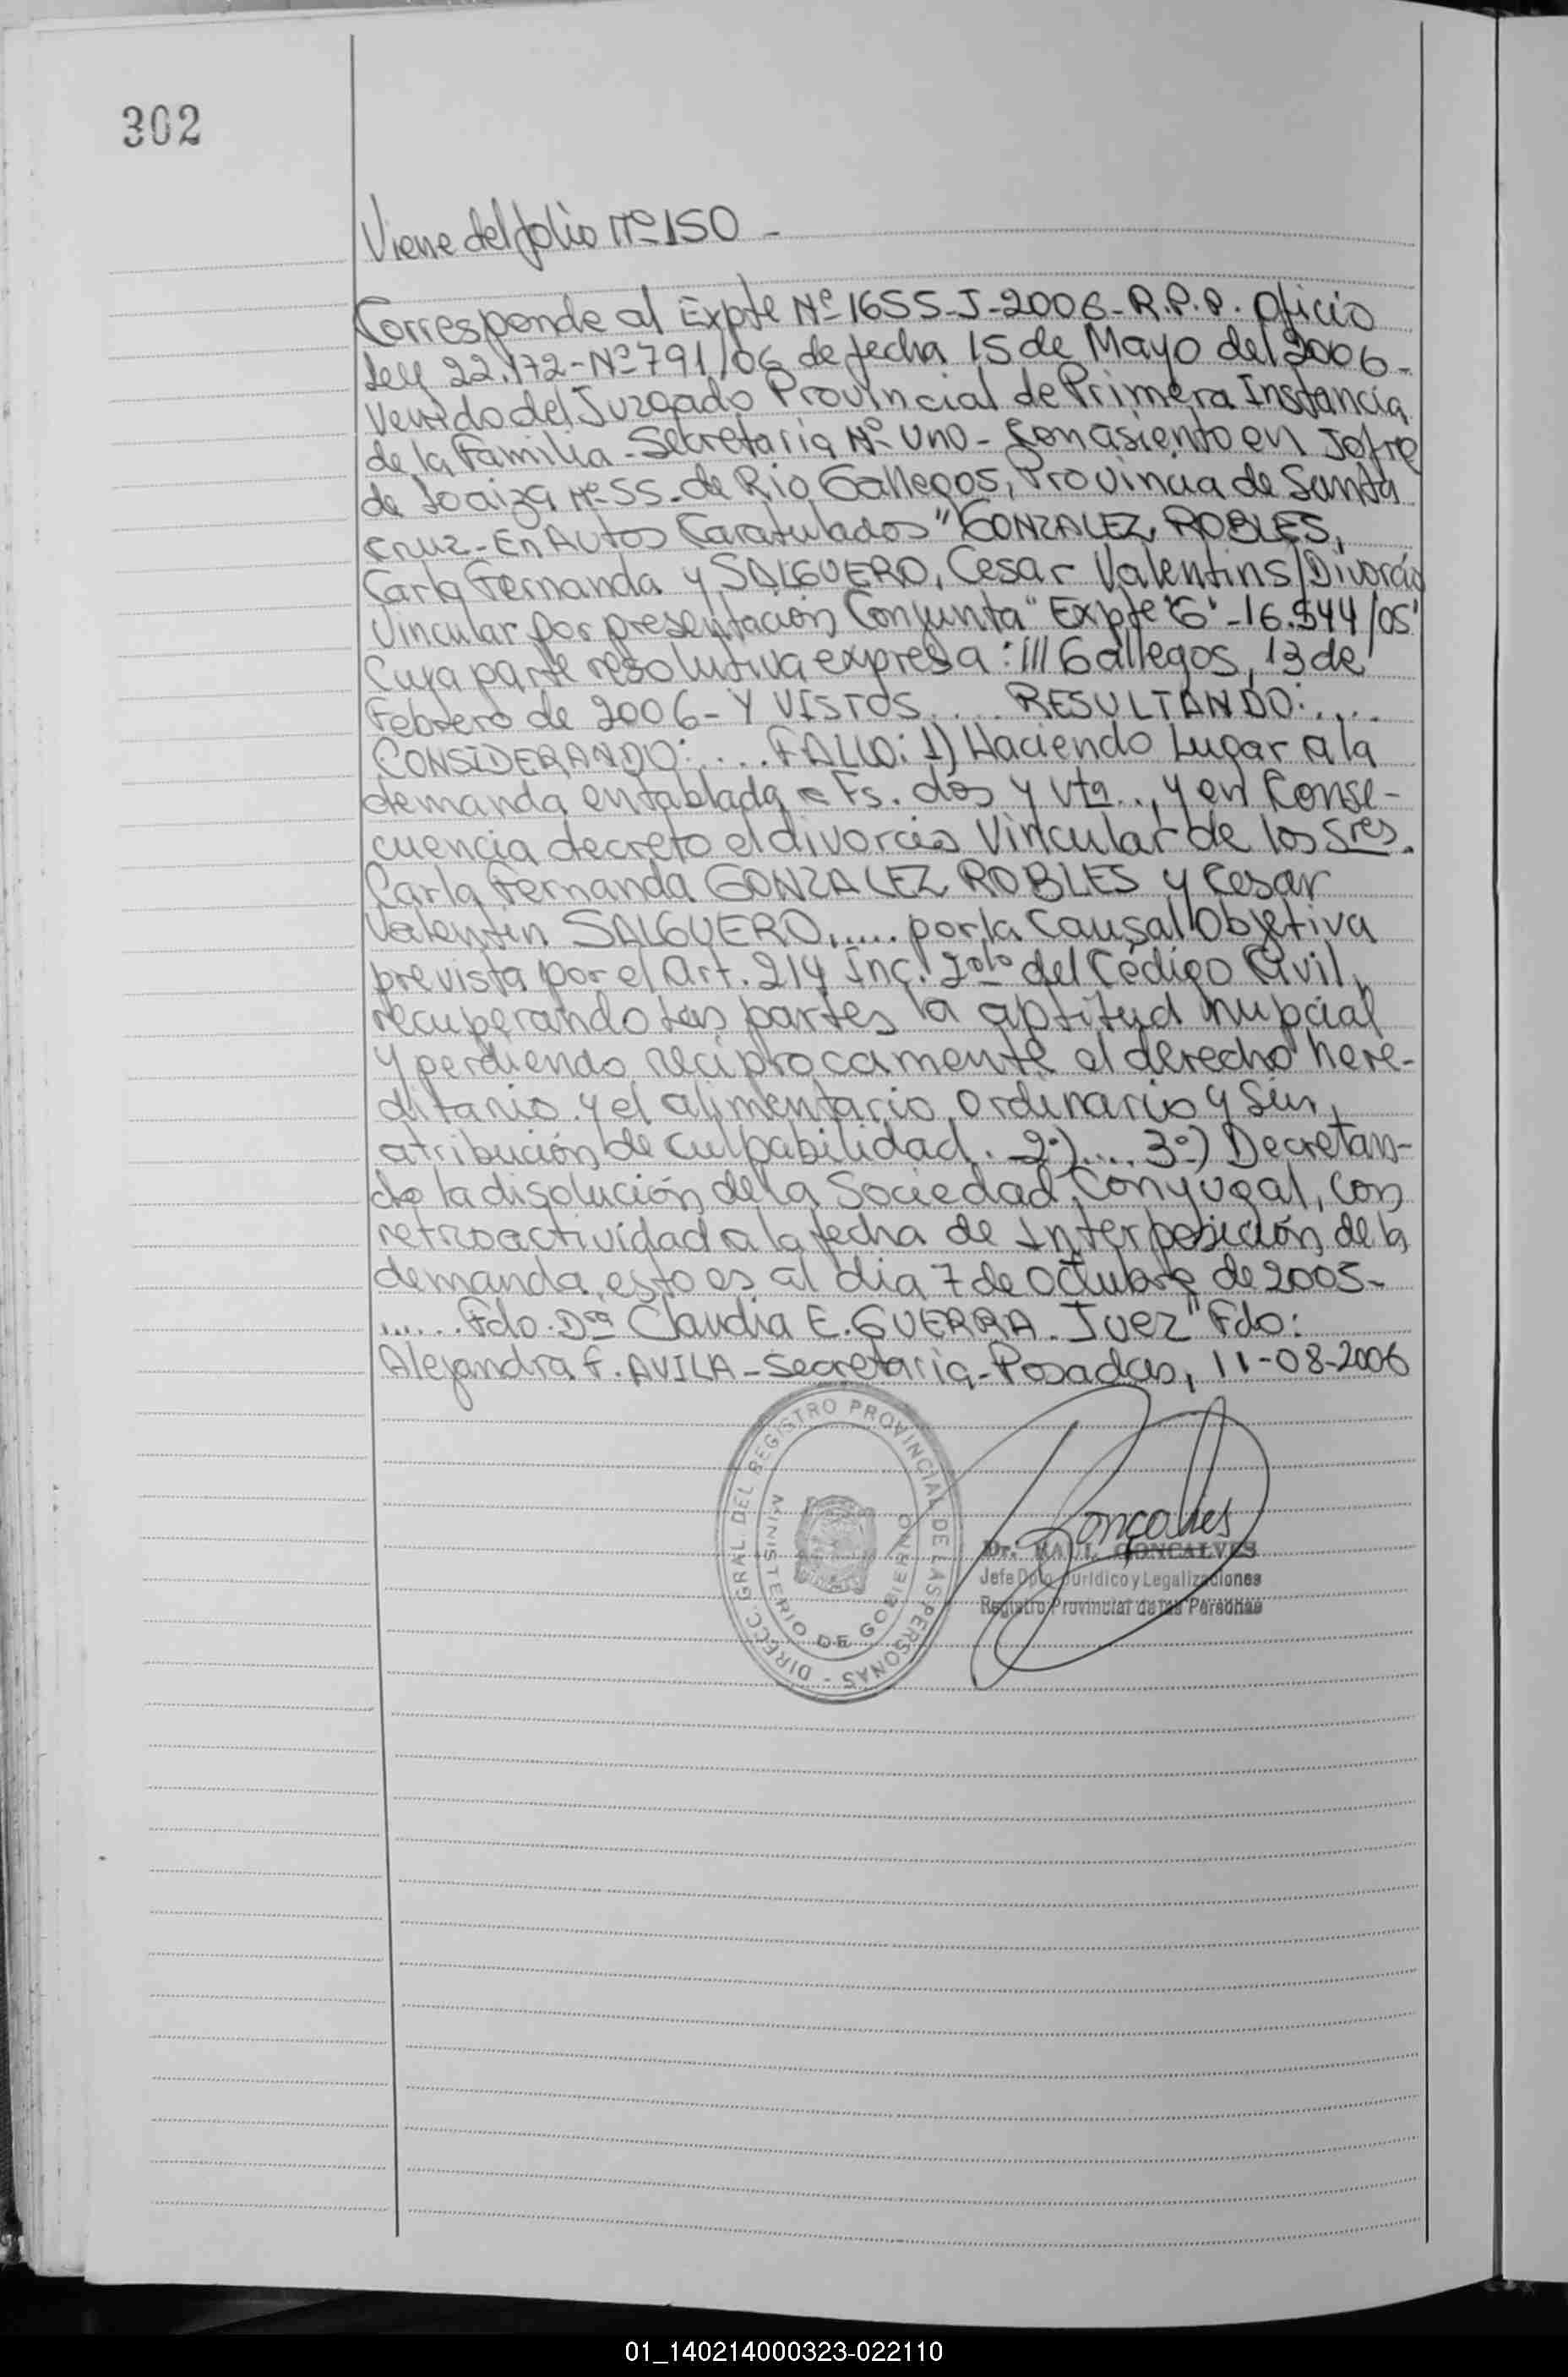 302
Viene del folio Nº 150 -
Corresponde al Expte Nº 1655-J-2006-R.P.P. Oficio
Ley 22.172-Nº 791/06 de fecha 15 de Mayo del 2006-
Venido del Juzgado Provincial de Primera Instancia
de la Familia-Secretaria Nº Uno- Con asiento en Jofre
de Loaiza Nº 55-de Rio Gallegos, Provincia de Santa
Cruz-En Autos Caratulados "GONZALEZ ROBLES,
Carla Fernanda y SALGUERO, Cesar Valentin s/Divorcio
Vincular por presentación Conjunta" Expte "G"-16.544/05"
Cuya parte resolutiva expresa: /// Gallegos, 13 de
Febrero de 2006- Y VISTOS.... RESULTANDO:....
CONSIDERANDO:.... FALLO: 1) Haciendo Lugar a la
demanda entablada a Fs. dos y vta.., y en Conse-
cuencia decreto el divorcio Vincular de los Sres.
Carla Fernanda GONZALEZ ROBLES y Cesar
Valentin SALGUERO,..... por la Causal Objetiva
prevista por el Art. 214 Inc. 2do del Código Civil,
recuperando las partes la aptitud nupcial
y perdiendo reciprocamente el derecho here-
ditario y el alimentario ordinario y sin
atribución de culpabilidad. 2º).... 3º) Decretan-
do la disolución de la Sociedad Conyugal, con
retroactividad a la fecha de Interposición de la
demanda, esto es al dia 7 de Octubre de 2005-
...... Fdo. Dra Claudia E. GUERRA. Juez" Fdo:
Alejandra F. AVILA-Secretaria-Posadas, 11-08-2006
DIRECC. GRAL. DEL REGISTRO PROVINCIAL DE LAS PERSONAS -
MINISTERIO DE GOBIERNO
Goncalves
Dr. RAUL GONCALVES
Jefe Dpto Jurídico y Legalizaciones
Registro Provincial de las Personas
01_140214000323-022110